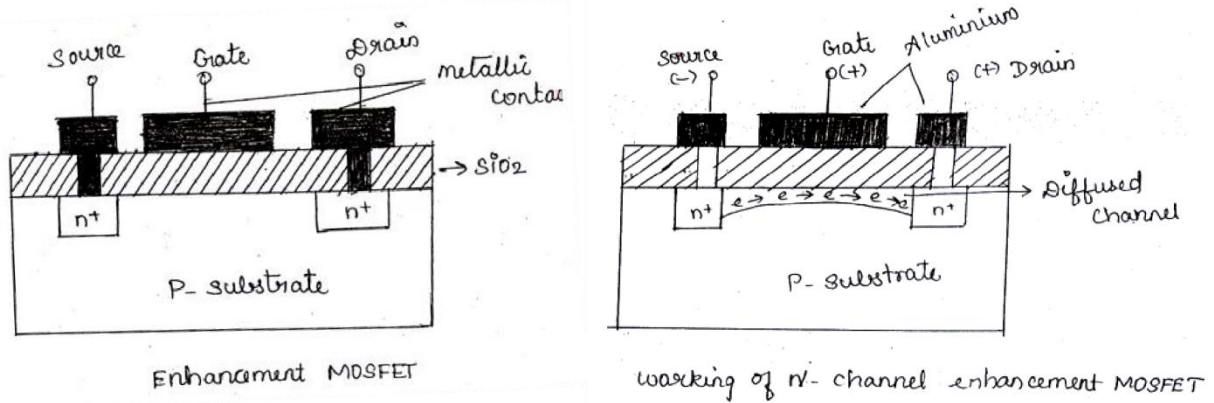 Source
Gate
Drain
metallic
contac
SiO2
n+
n+
P- substrate
Enhancement MOSFET
Source
(-)
Gate
(+)
Aluminium
(+) Drain
e → e → e → e → e
Diffused
channel
n+
n+
P- substrate
working of N- channel enhancement MOSFET